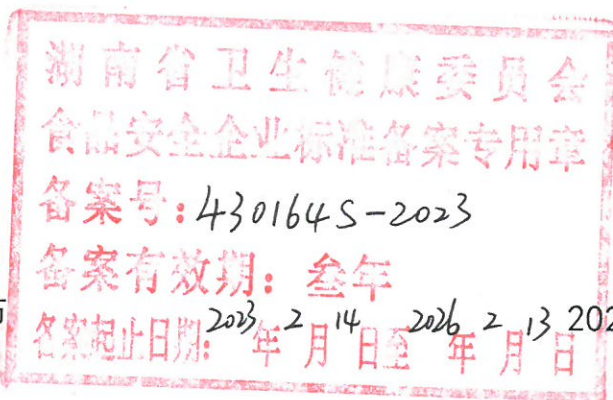 湖南省卫生健康委员会
食品安全企业标准备案专用章
备案号:430164S-2023
备案有效期:叁年
备案起止日期:2023年2月14日至2026年2月13日
202